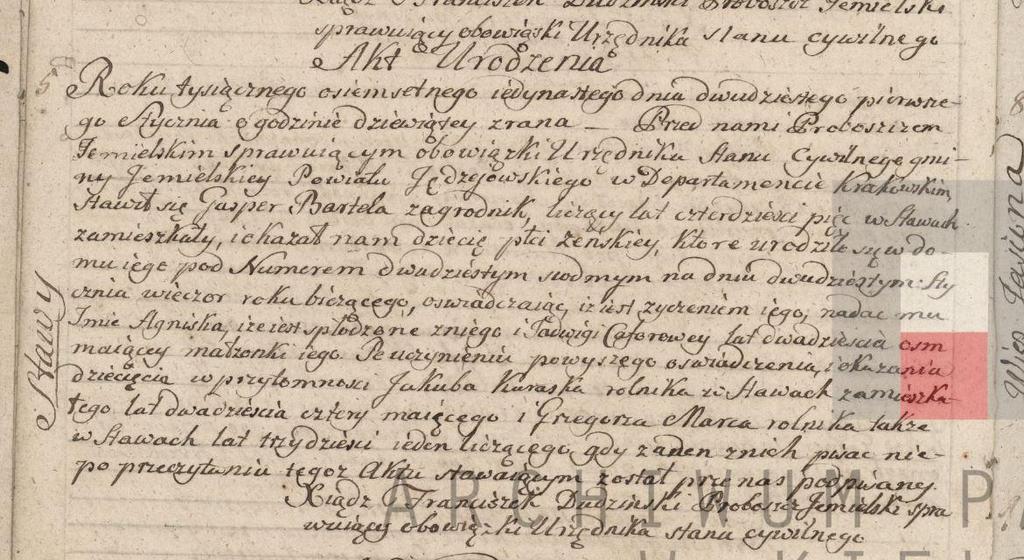 Xiądz Franciszek Dudzinski Proboszcz Jemielski
sprawuiący obowiąski Urzędnika stanu cywilnego
Akt Urodzenia
5 Roku tysiącznego osiemsetnego iedynastego dnia dwudziestego pierwsze-
go Stycznia o godzinie dziewiątey zrana _ Przed nami Proboszczem
Jemielskim sprawuiącym obowiązki Urzędnika Stanu Cywilnego gmi-
ny Jemielskiey Powiatu Jędrzejowskiego w Departamencie Krakowskim,
stawił się Gasper Bartela zagrodnik, liczący lat czterdzieści pięć w Stawach
zamieszkały, i okazał nam dziecię płci żeńskiey, ktore urodziło się w do-
mu iego pod Numerem dwudziestym siodmym na dniu dwudziestym Sty
cznia wieczor roku bieżącego, oswiadczaiąc, iż iest zyczeniem iego, nadac mu
Imie Agniska, iże iest spłodzone zniego i Jadwigi lat dwadziescia osm
maiącey małzonki iego. Po uczynieniu powyszego oswiadczenia, i okazania
dziecięcia w przytomnosci Jakuba Karaska rolnika w Stawach zamieszka-
tego lat dwadziescia cztery maiącego i Gregorza Marca rolnika takze
w Stawach lat trzydziesci ieden liczącego, gdy zaden znich pisac nie-
po przeczytaniu tegoż Aktu stawaiącym został prze nas podpisany.
Xiądz Franciszek Dudzinski Proboszcz Jemielski spra
wuiący obowiązki Urzędnika stanu cywilnego
Stawy
Wies Jasiona
8
ARCHIWUM PA
W KIEL